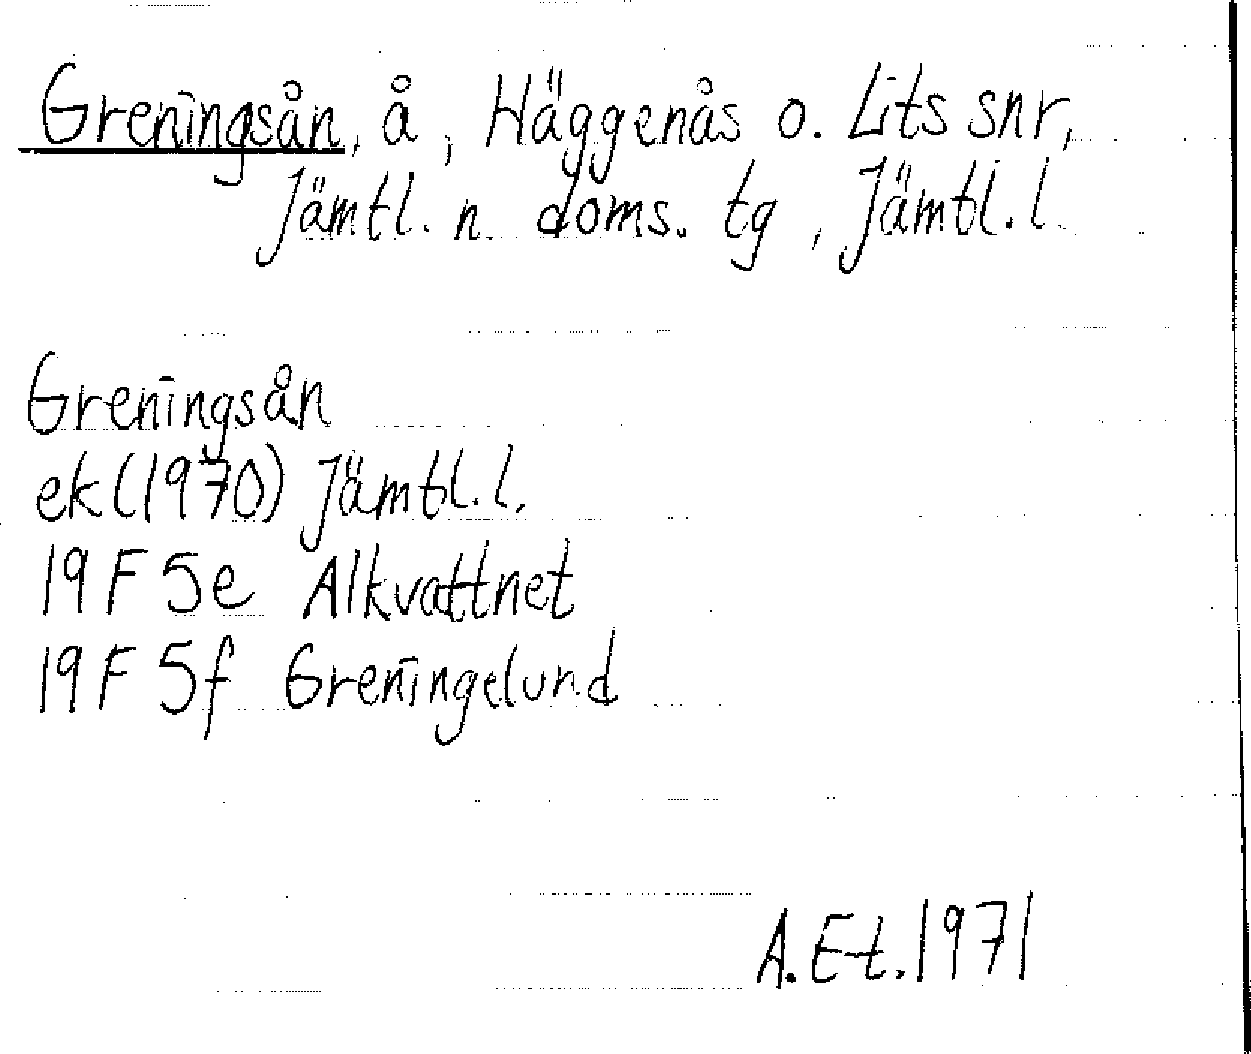 Greningsån, å, Häggenås o. Lits snr,
Jämtl. n. doms. tg, Jämtl. l.
Greningsån
ek (1970) Jämtl. l.
19 F 5e Alkvattnet
19 F 5f Greningelund
A. E-t. 1971